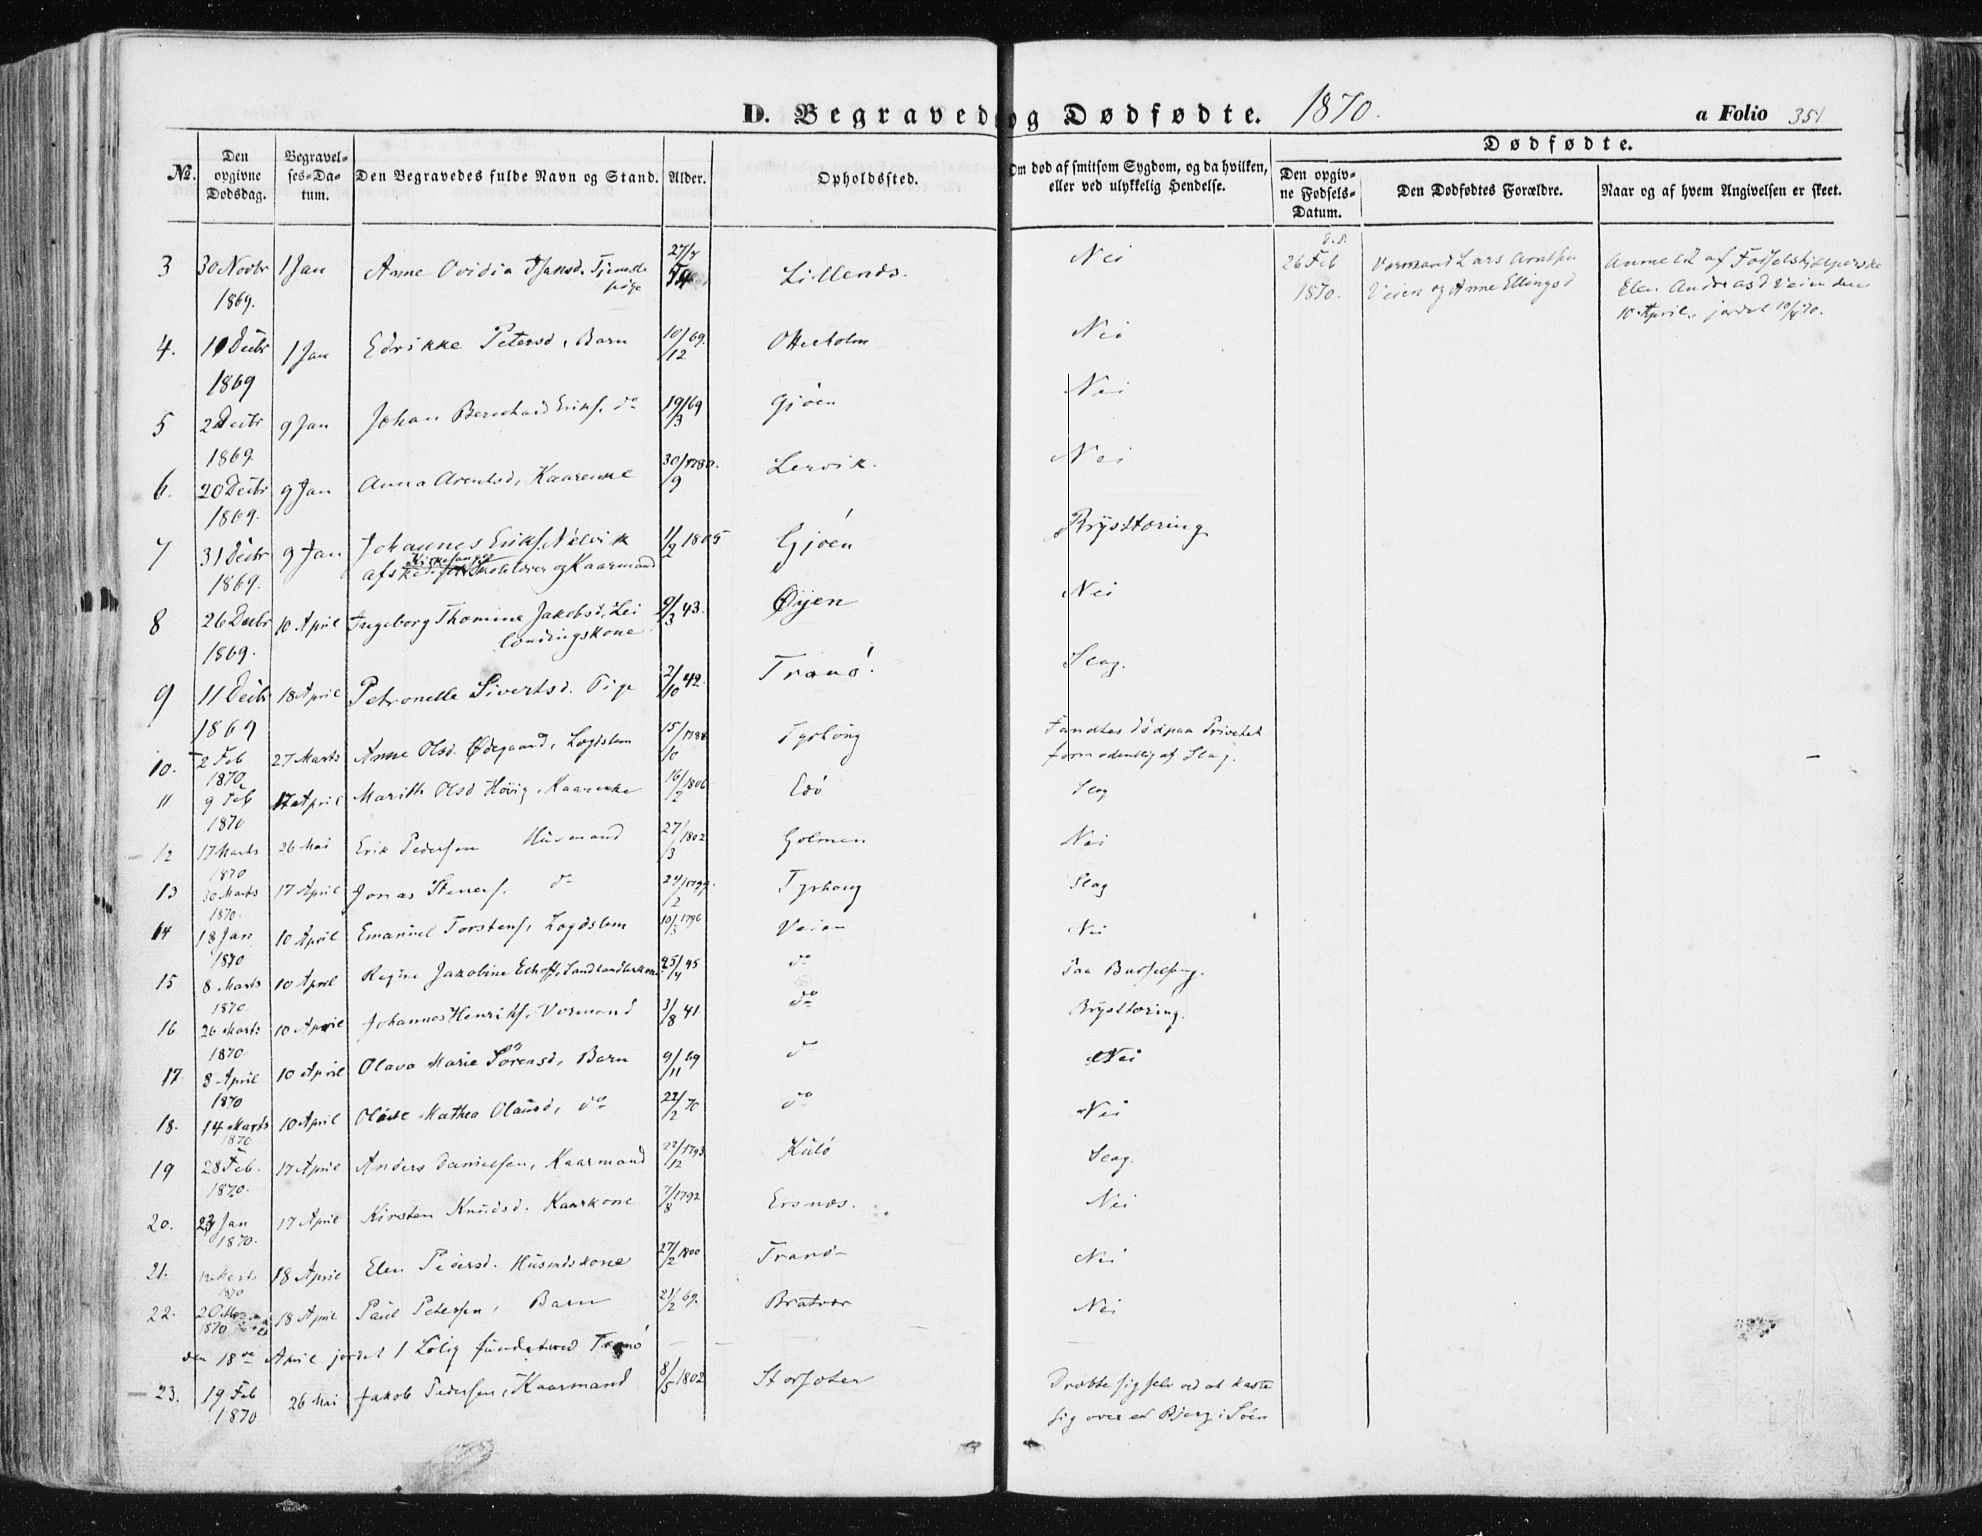 D. Begravede og Dødfødte. 1870. a Folio 351
Dødfødte.
№. Den opgivne Dødsdag. Begravelses-Datum. Den Begravedes fulde Navn og Stand. Alder. Opholdssted. Om død af smitsom Sygdom, og da hvilken, eller ved ulykkelig Hendelse. Den opgivne Fødsels-Datum. Den Dødfødtes Forældre. Naar og af hvem Angivelsen er skeet.
3 30 Novbr 1869. 1 Jan Anne Ovidia Hansd. Tjenestepige 27/7 Lillends. Nei
26 Feb 1870. Vormand Lars Arntsen Veien og Anne Ellingsd
Anmeldt af Fødselshjelperske Elen Andreasd Veien den 10 April, jordet 10/4 70.
4. 11 Decbr 1869 1 Jan Edrikke Petersd, Barn 10/12 69. Otterholm Nei
5 2 Decbr 1869. 9 Jan Johan Bernhard Eriks. do 19/3 69 Gjøen Nei
6. 20 Decbr 1869. 9 Jan Anna Arentsd, Kaarenke 30/9 1780. Lervik. Nei
7 31 Decbr 1869. 9 Jan Johannes Eriks. Nelvik afsked. Kirkesanger Skolelærer og Kaarmand 11/2 1805 Gjøen Brysttæring
8 26 Decbr 1869. 10 April Ingeborg Thomine Jakobsd, Leilændingskone 9/3 43. Øyen Nei
9 11 Decbr 1869 18 April Petronelle Sivertsd. Pige 2/10 42. Tranø. Slag.
10. 2 Feb 1870 27 Marts Anne Olsd. Ødegaard, Lægdslem 15/10 Tyrhoug Fandtes død paa Privetet formodentlig af Slag.
11 9 Feb 1870 17 April Marith Olsd Høvig, Kaarenke 16/2 1806 Edø Slag
12 17 Marts 1870 26 Mai Erik Pedersen Husmand 27/3 1802 Golmen Nei
13 30 Marts 1870. 17 April Jonas Steners. do 24/2 1799. Tyrhoug Slag
14 18 Jan 1870 10 April Emanuel Torstens, Lægdslem 10/3 1796 Veien Nei
15 8 Marts 1870. 10 April Regine Jakobine Ekhoff, Landhandlerkone 25/4 45 do Paa Barselseng.
16 26 Marts 1870 10 April Johannes Henriks, Vormand 3/8 41 do Brysttæring.
17 8 April 1870 10 April Olava Marie Sørensd, Barn 9/11 69 do Nei
18. 14 Marts 1870 10 April Mathea Olausd, do 22/2 70 do Nei
19 28 Feb. 1870. 17 April Anders Danielsen, Kaarmand 22/12 1793 Kulø Slag.
20. 23 Jan 1870. 17 April Kirsten Knudsd. Kaarkone 7/8 1792 Ersnæs. Nei
21. Marts 1870 18 April Elen Pedersd. Husmdskone 27/2 1800 Tranø Nei
22. 1870 18 April Paul Petersen, Barn 21/2 69. Bratvær Nei
den 18de April jordet 1 Lølig fundet ved Tranø
23. 19 Feb 1870 26 Mai Jakob Pedersen, Kaarmand 8/5 1802 Storfoter Dræbte sig selv ved at kaste sig over et Bjerg i Søen